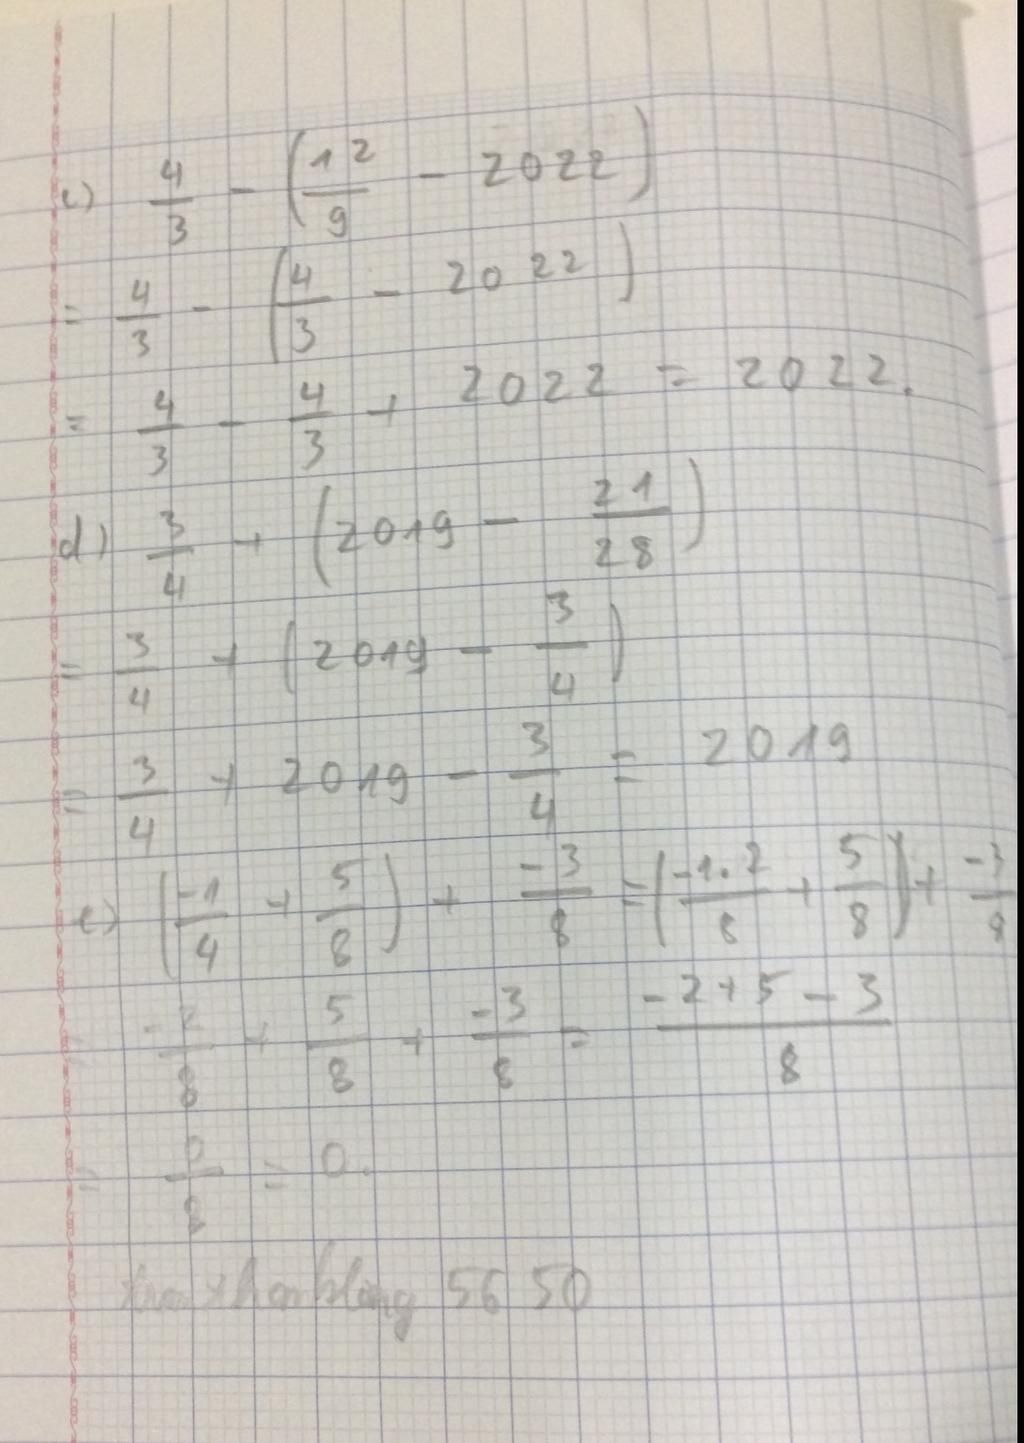 c) 4/3 - (12/9 - 2022)
= 4/3 - (4/3 - 2022)
= 4/3 - 4/3 + 2022 = 2022.
d) 3/4 + (2019 - 21/28)
= 3/4 + (2019 - 3/4)
= 3/4 + 2019 - 3/4 = 2019
e) (-1/4 + 5/8) + -3/8 = (-1.2/8 + 5/8) + -3/8
= -2/8 + 5/8 + -3/8 = -2+5-3/8
= 0/8 = 0.
5650